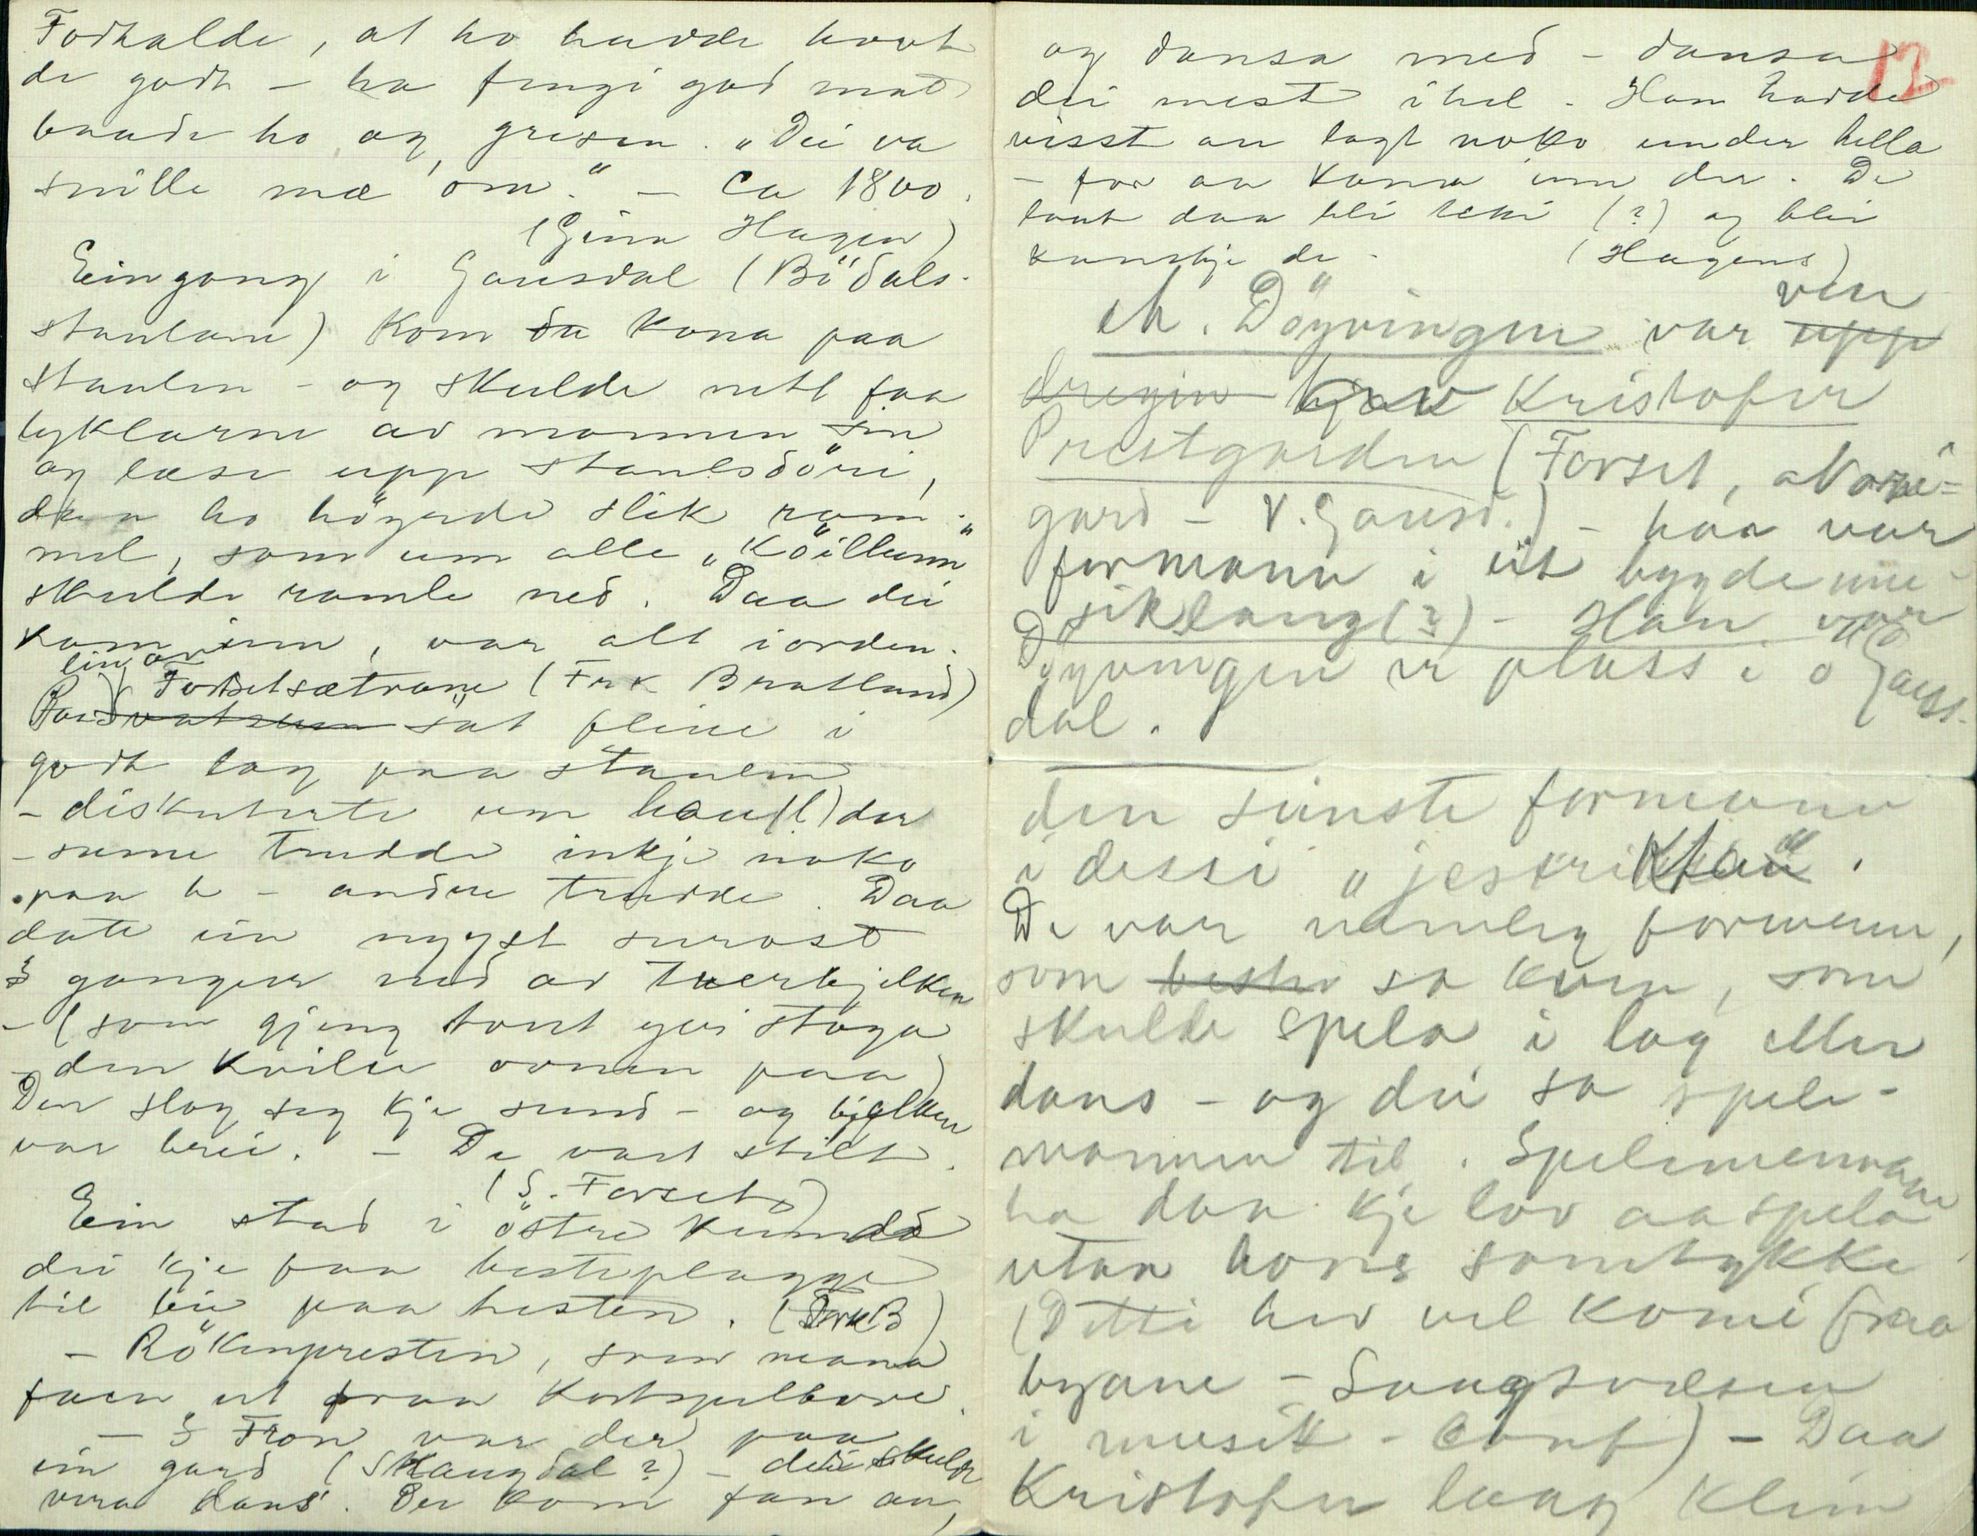 Fortalde, at ho hadde havt
de godt – ha fengi god mat
baade ho og grisen. "Dei va
snille mæ om." – Ca 1800.
(Gina Hagen)
Eingong i Gausdal (Bödals-
staulane) kom da kona paa
staulen – og skulde nett faa
lyklarne av mannen sin
og læse upp staulsdöri,
daa ho höyrde slik ram-
mel, som um alle "Köillunn"
skulde ramle ned. Daa dei
kom inn, var alt iorden.
ein av
Paa Forsetsætrane (Frk Bratland)
sat fleire i
godt lag paa staulen
– diskuterte um hau(l)der
– sume trudde inkje noko
paa h – andre trudde. Daa
datt ein nygst surost
3 gonger ned av tverrbjelken
– (som gjeng tvert yvi stoga
– den kviler ovnen paa)
Den slog seg kje sund – og bjelken
var brei. – De vart stilt.
(S. Forseth)
Ein stad i östre kunde
dei kje faa hesteplagge
til leie paa hesten. (Frk B)
– Rökenpresten, som mana
faen ut fraa kortspelbore.
– I Fron var der paa
ein gard (Skaugdal?) – dei skulde
vera dans. Der kom fan an,
12
og dansa med – dansa
dei mest ihel – Han hadde
visst an lagt noko under hella
– for aa koma inn der. De
laut daa bli teki (?) og blei
kanskje de – (Hagens)
M. Döyvingen var ven
upp
dregin hjaa Kristofer
Prestgarden (Forset,
gard – V. Gausd.) – han var
formann i eit bygdemu-
siklang(?) – Han var
Döyvingen er plass i Ö Gaus-
dal.
den siinste formann
i dessi "jestri
De var nemleg formenn,
som besten sa kven, som
skulde spela i lag eller
dans – og dei sa spele-
mannen til. Spelemennane
ha daa kje lov aa spela
utan hans samtykke
(Dette her vel komé fraa
byane – Laugsvæsen
i musik – Conf) – Daa
Kristofer laag klein